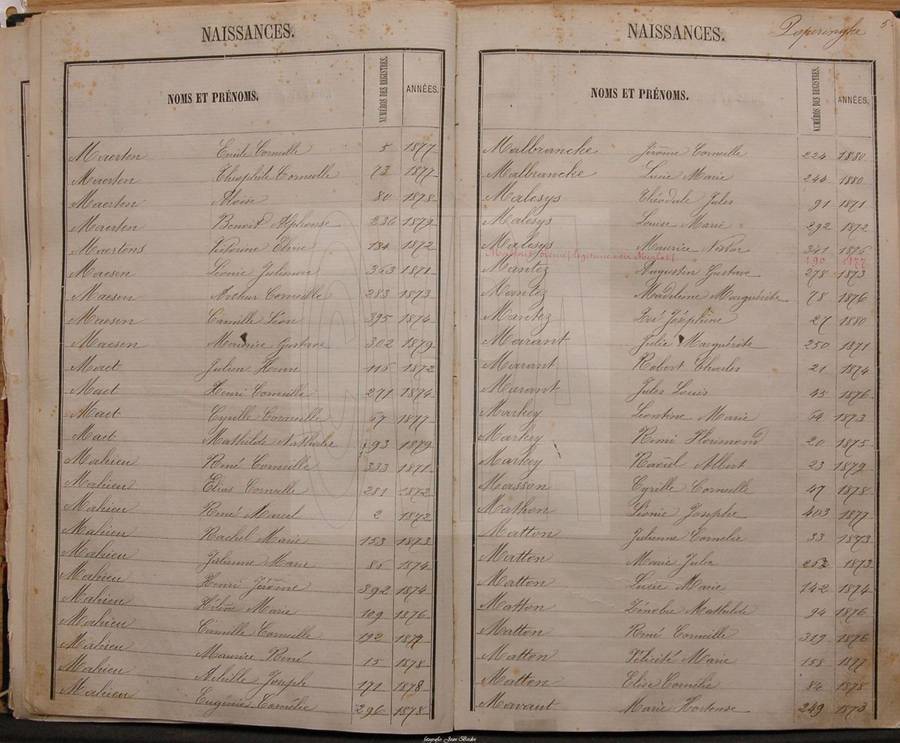 NAISSANCES.
NOMS ET PRÉNOMS. NUMÉROS DES REGISTRES. ANNÉES.
Maerten Emile Corneille 5 1877
Maerten Théophile Corneille 73 1877
Maerten Aloïse 80 1878
Maerten Benoit Alphonse 236 1879
Maertens 134 1872
Maesen Léonie Julienne 343 1871
Maesen Arthur Corneille 283 1873
Maesen Camille Léon 395 1874
Maesen Maurice Gustave 302 1879
Maet Julien Henri 115 1872
Maet Henri Corneille 271 1874
Maet Cyrille Corneille 67 1877
Maet Mathilde Nathalie 93 1879
Mahieu René Corneille 333 1871
Mahieu Elias Corneille 281 1872
Mahieu René Marcel 2 1872
Mahieu Rachel Marie 153 1873
Mahieu Julienne Marie 80 1874
Mahieu Henri Jérôme 392 1874
Mahieu Hélène Marie 109 1876
Mahieu Camille Corneille 192 1877
Mahieu Maurice René 15 1878
Mahieu Achille Joseph 171 1878
Mahieu Eugénie Cornélie 296 1878
NAISSANCES. Poperinghe 5
NOMS ET PRÉNOMS. NUMÉROS DES REGISTRES. ANNÉES.
Malbrancke Jérôme Corneille 224 1880
Malbrancke Lucie Marie 244 1880
Malesys Théodule Jules 91 1871
Malesys Louise Marie 292 1872
Malesys Maurice Nestor 341 1875
190 1877
Mantez Augustin Gustave 278 1873
Mantez Madeleine Marguérite 78 1876
Mantez Zoé Joséphine 27 1880
Marant Julie Marguérite 250 1871
Marant Robert Charles 21 1874
Marant Jules Louis 45 1876
Markey Léontine Marie 64 1873
Markey Remi Florimond 20 1875
Markey Raoül Albert 23 1879
Masson Cyrille Corneille 47 1878
Mathon Léonie Josephe 403 1877
Matton Julienne Cornelie 33 1873
Matton Marie Julie 252 1873
Matton Lucie Marie 142 1874
Matton Zénobie Mathilde 94 1876
Matton René Corneille 319 1876
Matton Félicité Marie 158 1877
Matton Elise Cornélie 84 1878
Mavant Marie Hortense 249 1873